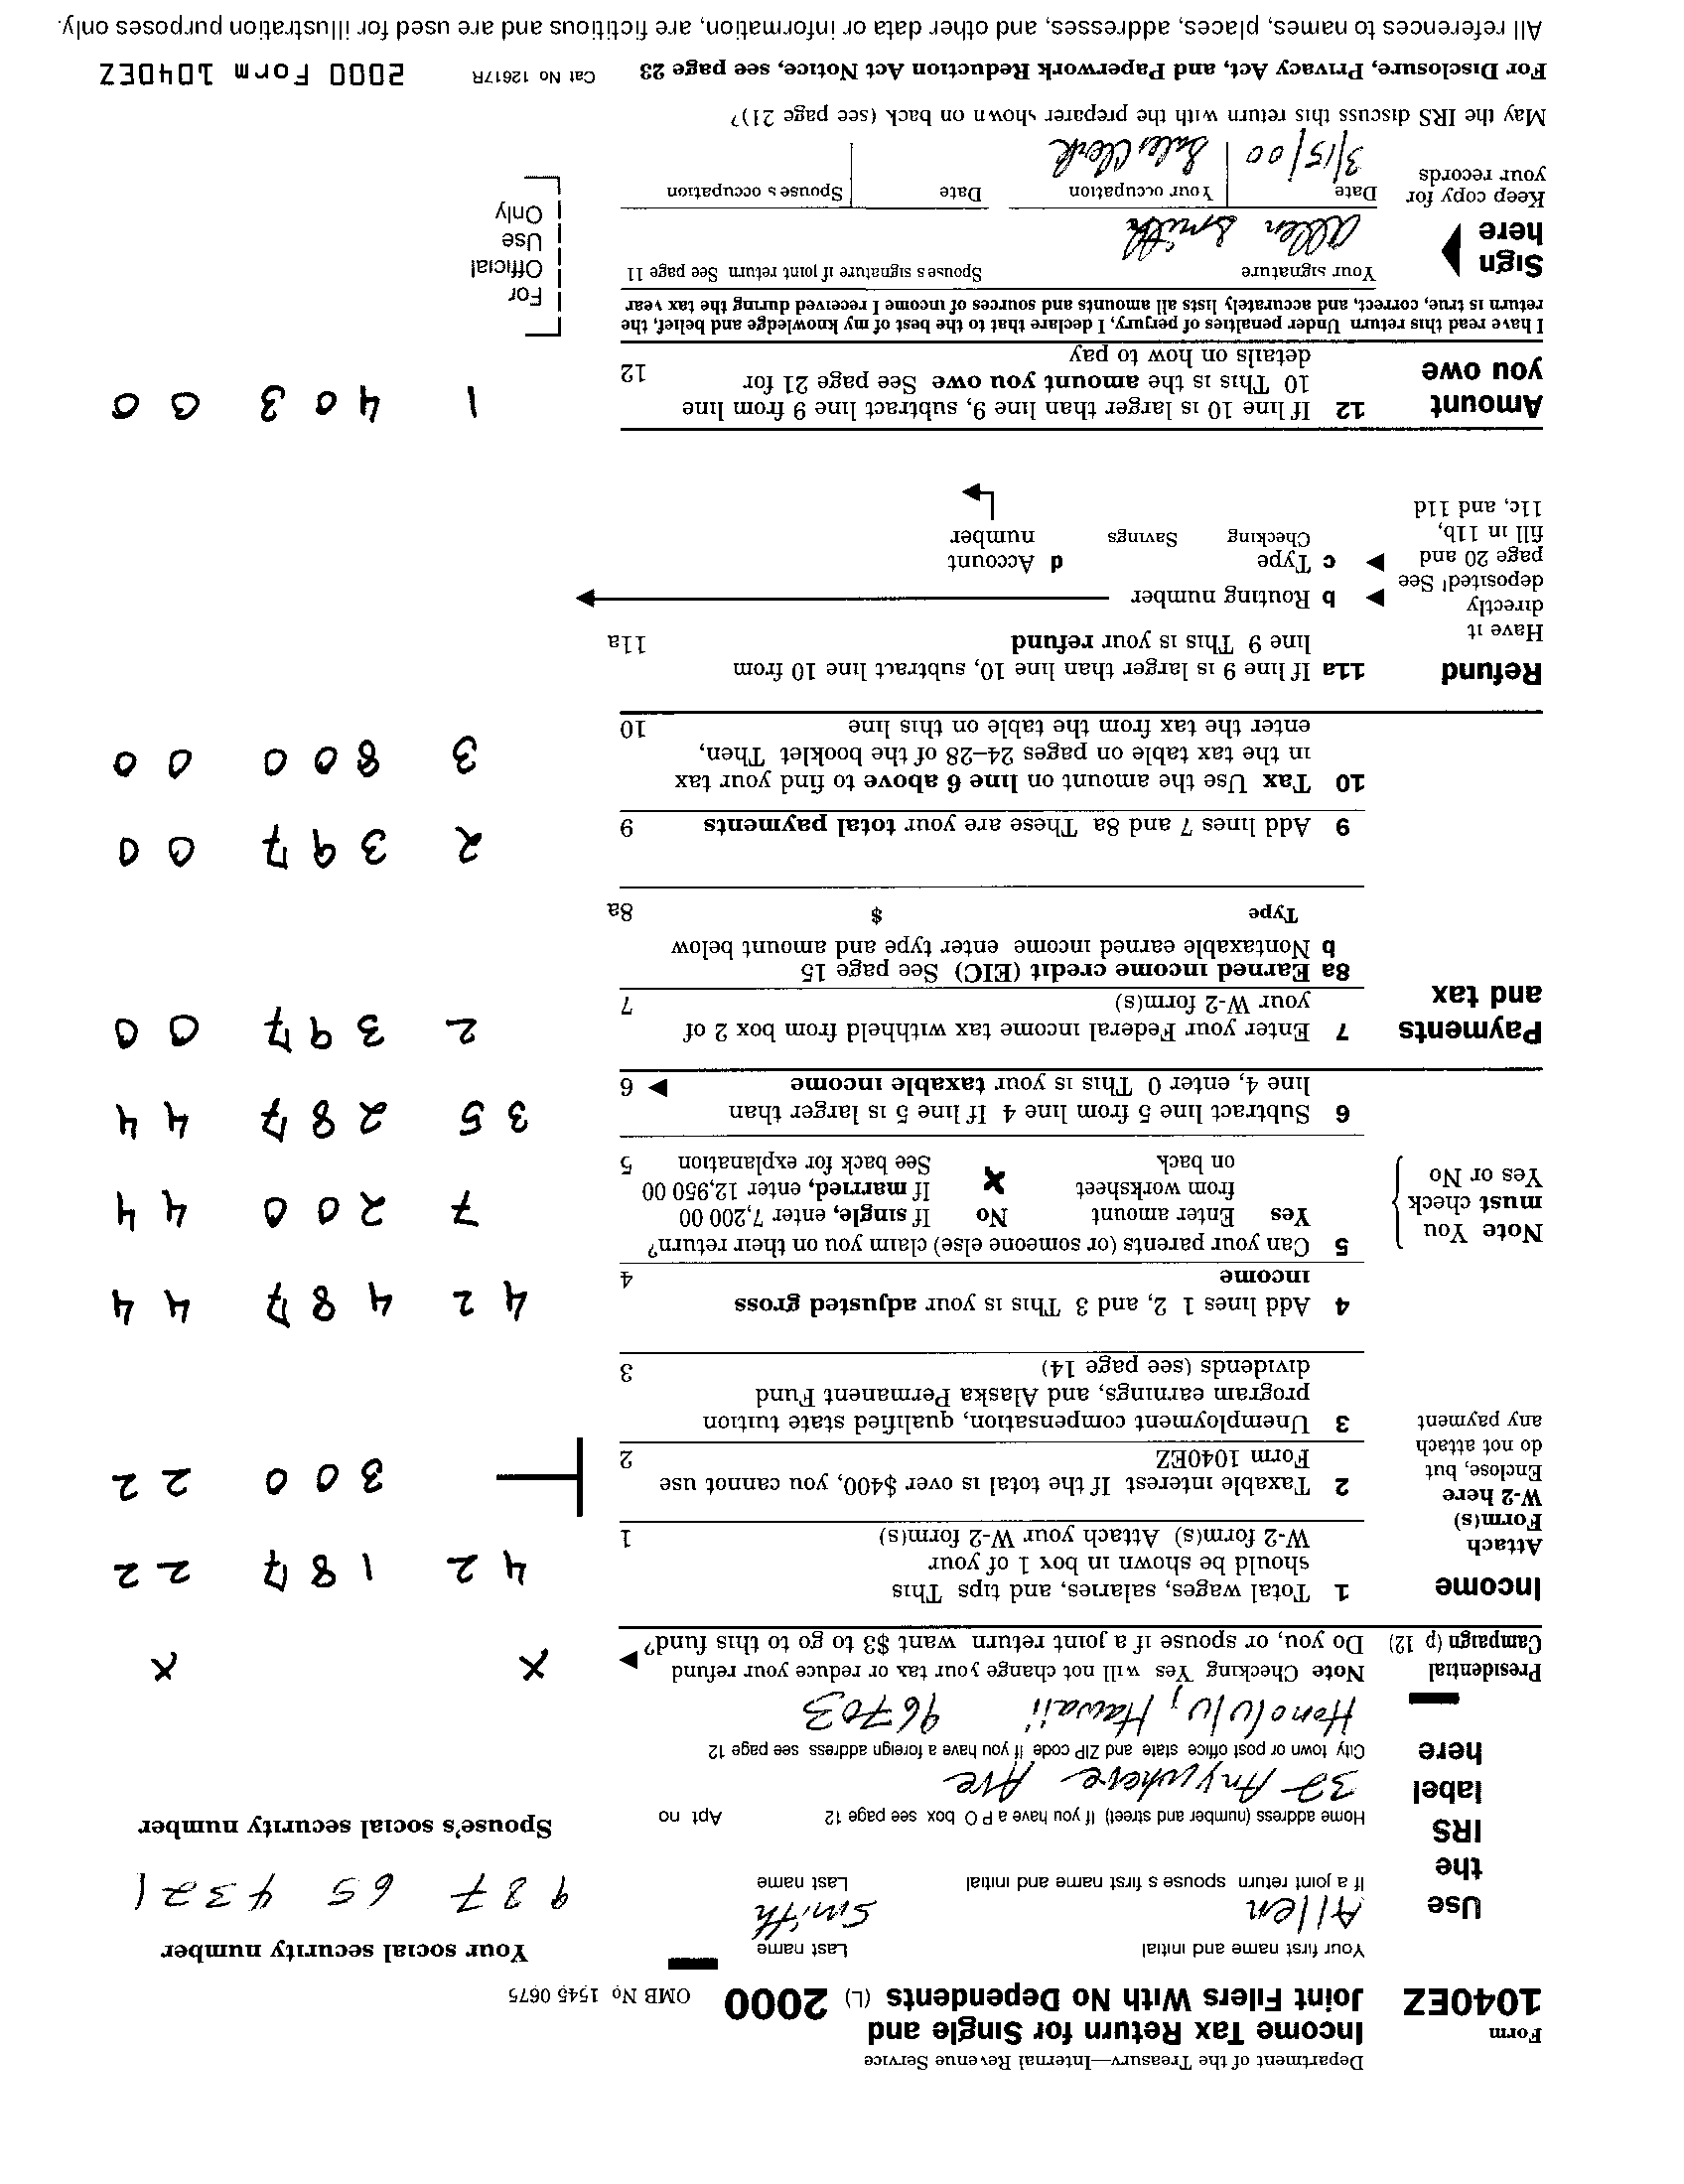 Department of the Treasury—Internal Revenue Service
Form 1040EZ Income Tax Return for Single and Joint Filers With No Dependents (L) 2000 OMB No 1545 0675
Use the IRS label here
Your first name and initial Last name Your social security number
Allen Smith 987 65 4321
If a joint return spouse s first name and initial Last name
Home address (number and street) If you have a P O box see page 12 Apt no Spouse's social security number
32 Anywhere Ave
City town or post office state and ZIP code If you have a foreign address see page 12
Honolulu, Hawaii 96703
Presidential Campaign (p 12)
Note Checking Yes will not change your tax or reduce your refund
Do you, or spouse if a joint return want $3 to go to this fund? ▶ X X
Income
Attach
Form(s)
W-2 here
Enclose, but
do not attach
any payment
1 Total wages, salaries, and tips This
should be shown in box 1 of your
W-2 form(s) Attach your W-2 form(s) 1 42 187 22
2 Taxable interest If the total is over $400, you cannot use
Form 1040EZ 2 300 22
3 Unemployment compensation, qualified state tuition
program earnings, and Alaska Permanent Fund
dividends (see page 14) 3
4 Add lines 1 2, and 3 This is your adjusted gross
income 4 42 487 44
Note You
must check
Yes or No
5 Can your parents (or someone else) claim you on their return?
Yes Enter amount No If single, enter 7,200 00
from worksheet X If married, enter 12,950 00
on back See back for explanation 5 7 200 44
6 Subtract line 5 from line 4 If line 5 is larger than
line 4, enter 0 This is your taxable income ▶ 6 35 287 44
Payments
and tax
7 Enter your Federal income tax withheld from box 2 of
your W-2 form(s) 7 2 397 00
8a Earned income credit (EIC) See page 15
b Nontaxable earned income enter type and amount below
Type $ 8a
9 Add lines 7 and 8a These are your total payments 9 2 397 00
10 Tax Use the amount on line 6 above to find your tax
in the tax table on pages 24–28 of the booklet Then,
enter the tax from the table on this line 10 3 800 00
Refund
Have it
directly
deposited! See
page 20 and
fill in 11b,
11c, and 11d
11a If line 9 is larger than line 10, subtract line 10 from
line 9 This is your refund 11a
▶ b Routing number
▶ c Type d Account
Checking Savings number
Amount
you owe
12 If line 10 is larger than line 9, subtract line 9 from line
10 This is the amount you owe See page 21 for
details on how to pay 12 1 403 00
I have read this return Under penalties of perjury, I declare that to the best of my knowledge and belief, the
return is true, correct, and accurately lists all amounts and sources of income I received during the tax year
Sign
here
Keep copy for
your records
Your signature Spouse s signature if joint return See page 11
Allen Smith
Date Your occupation Date Spouse s occupation
3/15/00 Sales Clerk
For
Official
Use
Only
May the IRS discuss this return with the preparer shown on back (see page 21)?
For Disclosure, Privacy Act, and Paperwork Reduction Act Notice, see page 23 Cat No 12617R 2000 Form 1040EZ
All references to names, places, addresses, and other data or information, are fictitious and are used for illustration purposes only.